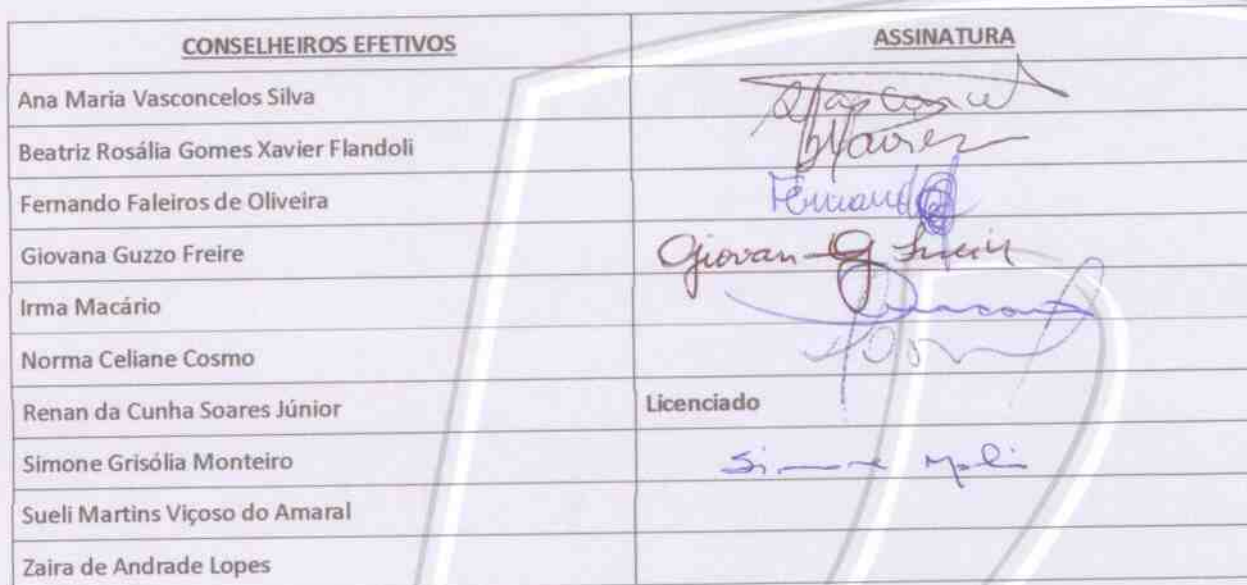 CONSELHEIROS EFETIVOS ASSINATURA
Ana Maria Vasconcelos Silva
Beatriz Rosália Gomes Xavier Flandoli
Fernando Faleiros de Oliveira
Giovana Guzzo Freire Giovan G Freire
Irma Macário
Norma Celiane Cosmo
Renan da Cunha Soares Júnior Licenciado
Simone Grisólia Monteiro Simone
Sueli Martins Viçoso do Amaral
Zaira de Andrade Lopes